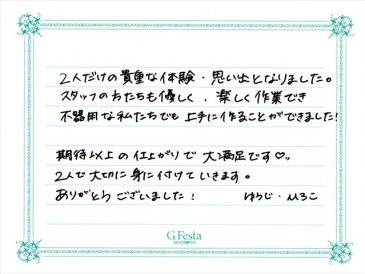 2人だけの貴重な体験・思い出となりました。
スタッフの方たちも優しく、楽しく作業でき
不器用な私たちでも上手に作ることができました!
期待以上の仕上がりで大満足です♡
2人で大切に身に付けていきます。
ありがとうございました! ゆうじ・ひろこ
G.Festa
DIAMOND